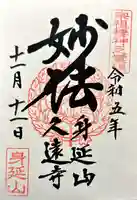 令和五年
身延山
妙法
久遠寺
十一月十一日
身延山